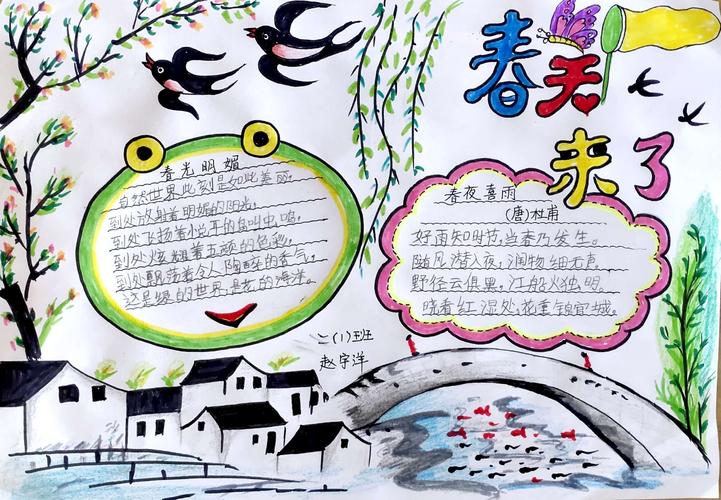 春天
来了
春光明媚
自然世界此刻是如此美丽，
到处放射着明媚的阳光，
到处飞扬着悦耳的鸟叫虫鸣，
到处炫耀着五颜的色彩，
到处飘荡着令人陶醉的香气。
这是绿的世界，是花的海洋。
春夜喜雨
(唐)杜甫
好雨知时节，当春乃发生。
随风潜入夜，润物细无声。
野径云俱黑，江船火独明。
晓看红湿处，花重锦官城。
二(1)班
赵宇洋